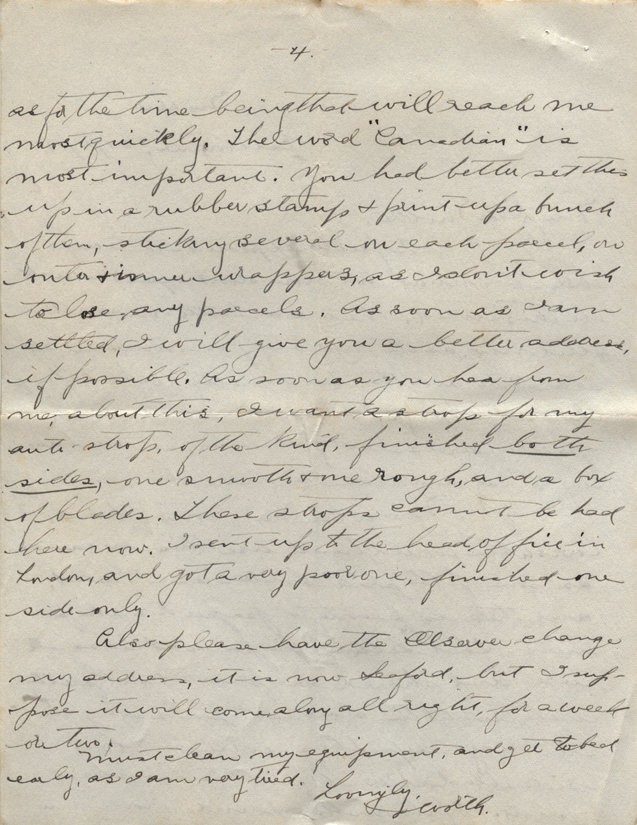 -4.
as for the time being that will reach me
most quickly. The word "Canadian" is
most important. You had better set this
up in a rubber stamp & print up a bunch
of them, sticking several on each parcel, on
outer & inner wrappers, as I don't wish
to lose any parcels. As soon as I am
settled, I will give you a better address,
if possible. As soon as you hear from
me, about this, I want a strop for my
auto strop, of the kind, finished both
sides, one smooth & one rough, and a box
of blades. These strops cannot be had
here now. I sent up to the head office in
London, and got a very poor one, finished one
side only.
Also please have the Observer change
my address, it is now Seaford, but I sup-
pose it will come along all right, for a week
or two.
Must clean my equipment, and get to bed
early, as I am very tired.
Lovingly,
Worth.